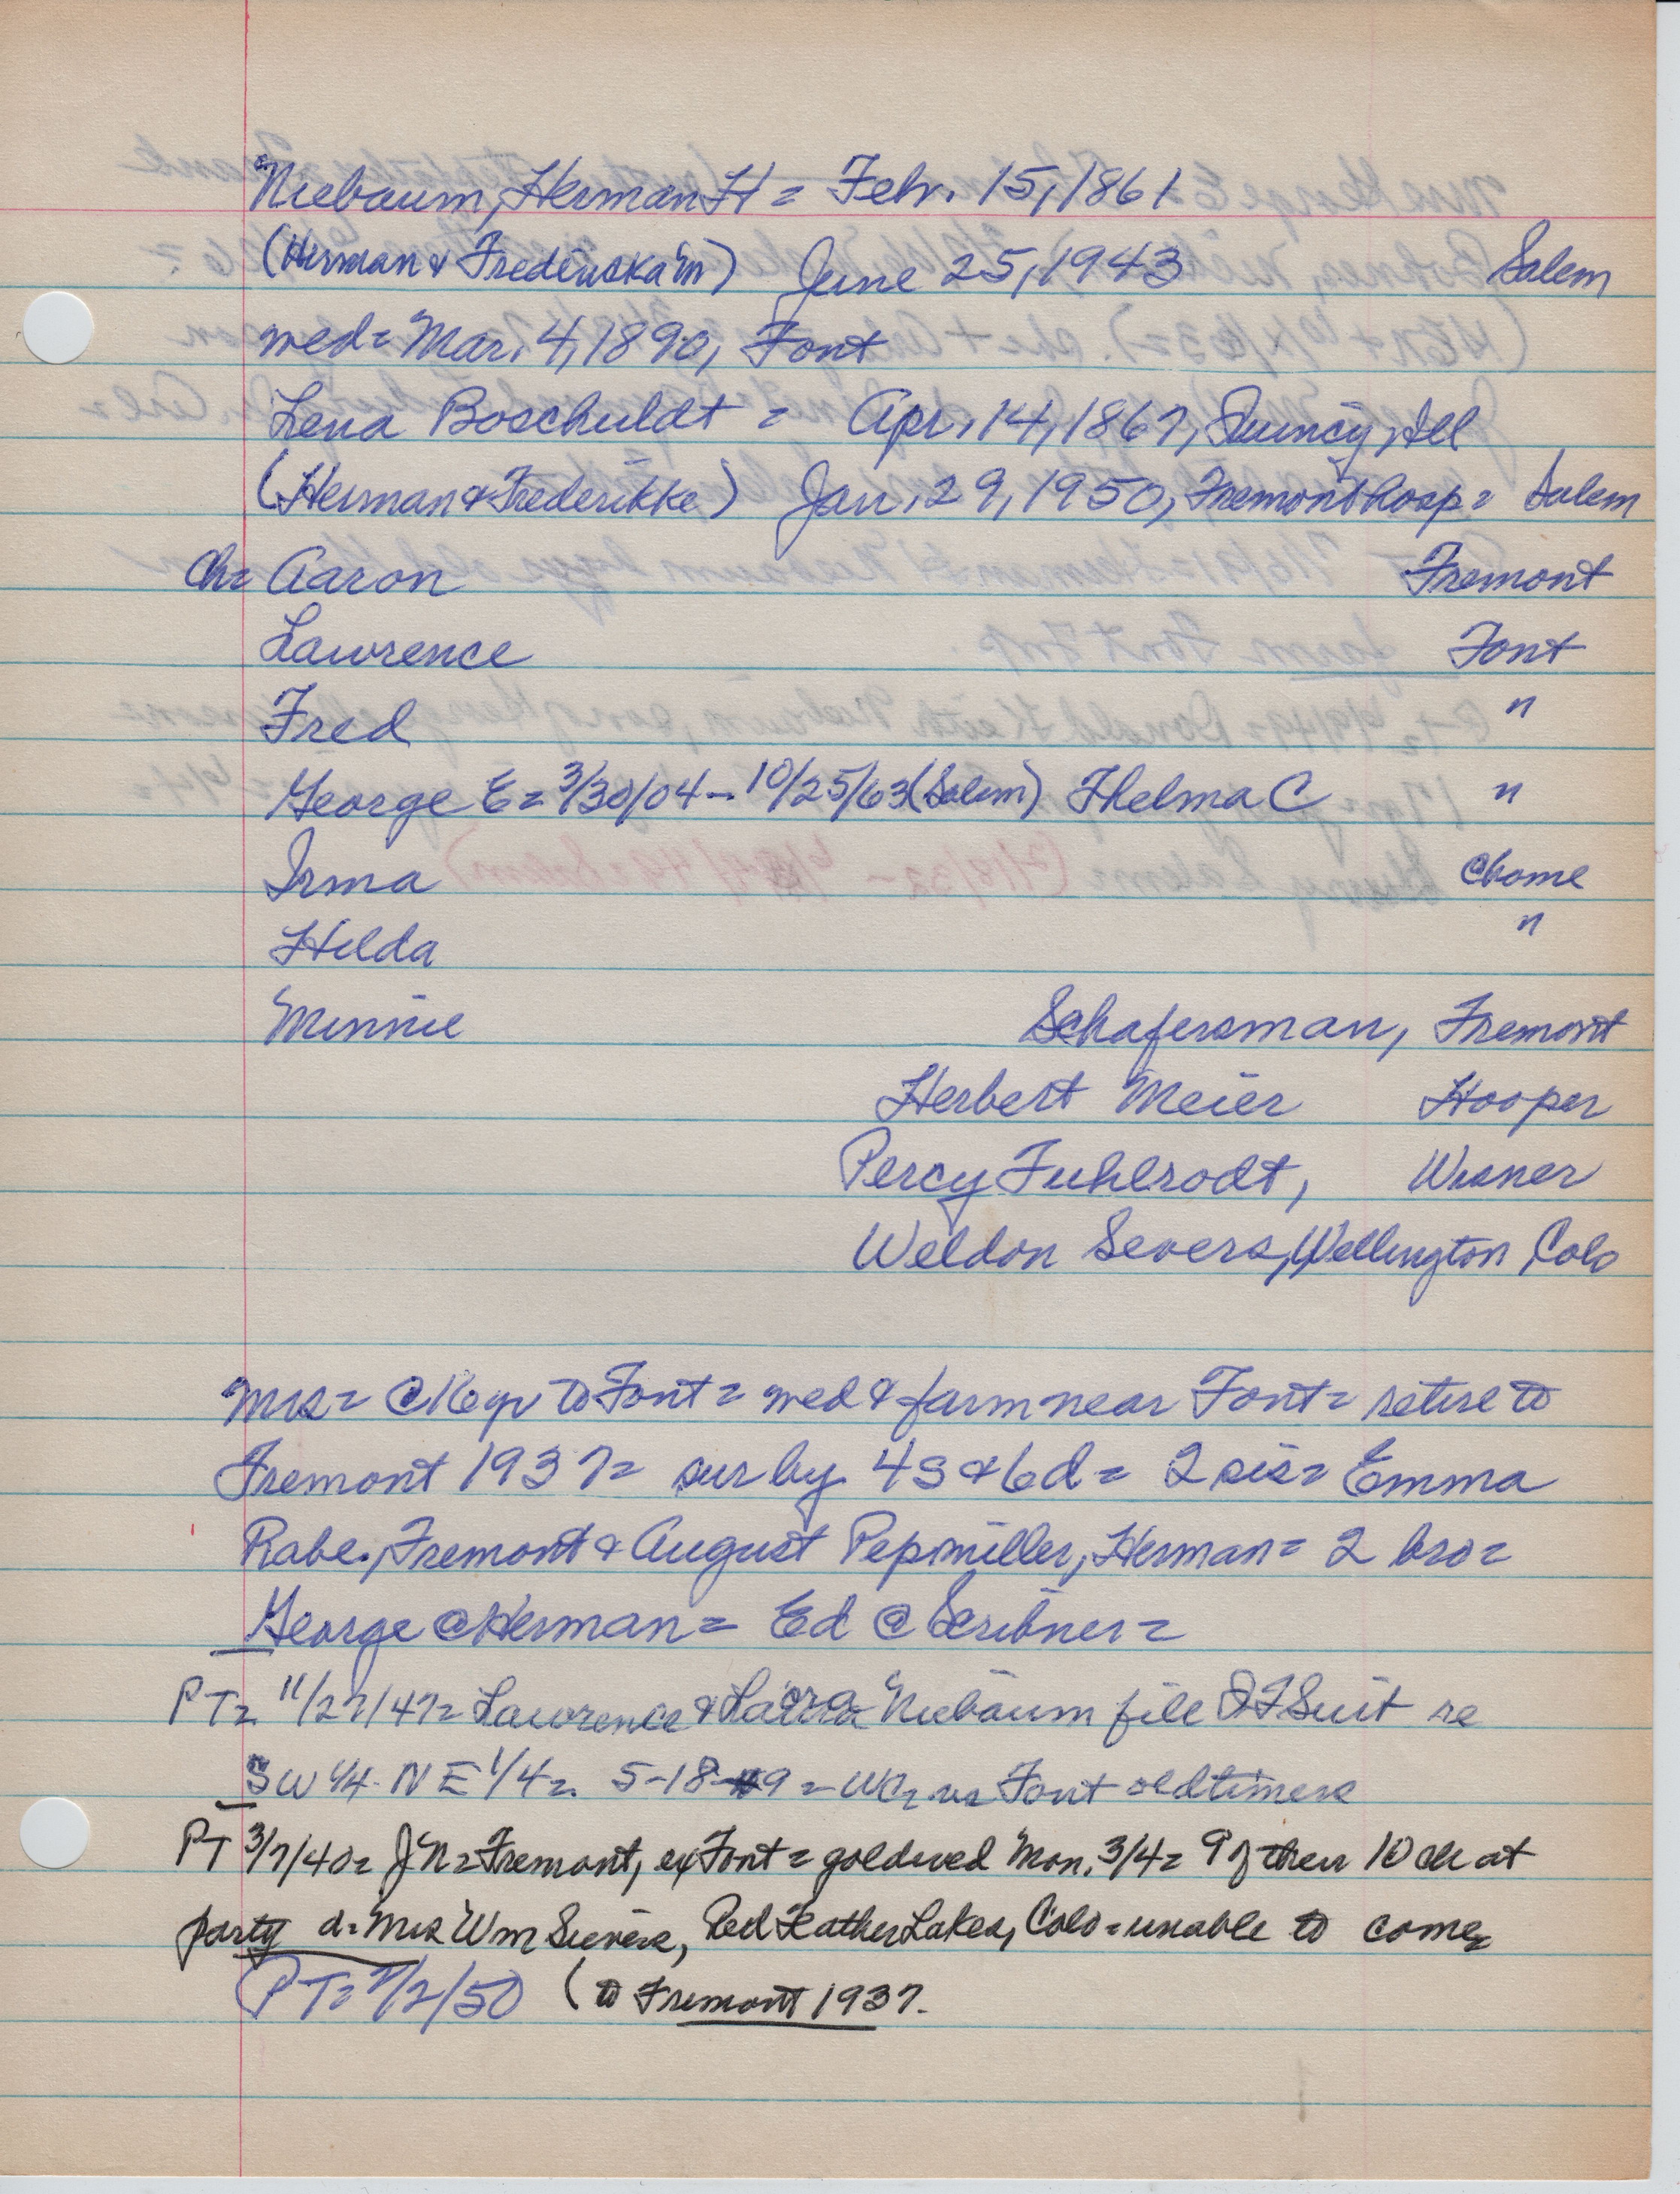 Niebaum, Herman H = Febr. 15, 1861
(Herman & Frederiska m) June 25, 1943 Salem
wed = Mar. 4, 1890, Font
Lena Boschuldt = Apr. 14, 1867, Quincy, Ill
(Herman & Frederikke) Jan. 29, 1950, Fremont hosp = Salem
Ch= Aaron Fremont
Lawrence Font
Fred "
George E = 3/30/04 - 10/25/63 (Salem) Thelma C "
Irma @home
Hilda "
Minnie Schafersman, Fremont
Herbert Meier Hooper
Percy Fuhlrodt, Wisner
Weldon Severs, Wellington, Colo
Mrs = @ 16 yr to Font = wed & farm near Font = retire to
Fremont 1937 = sur by 4s & 6d = 2 sis = Emma
Rabe, Fremont & August Pepmiller, Herman = 2 bro =
George @ Herman = Ed @ Scribner =
PT= 11/27/47= Lawrence & Laura Niebaum file QT Suit re
SW 1/4 NE 1/4 = 5-18-9 = vs Font oldtimers
PT 3/7/40= JN = Fremont, ex Font = goldwed Mon. 3/4 = 9 of their 10 ch at
party d= Mrs Wm Sievers, Red Feather Lakes, Colo = unable to come
PT= 2/2/50 (to Fremont 1937.